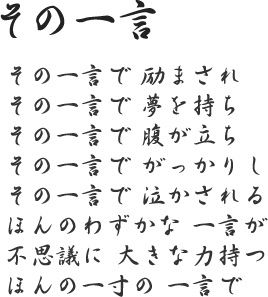 その一言
その一言で励まされ
その一言で夢を持ち
その一言で腹が立ち
その一言でがっかりし
その一言で泣かされる
ほんのわずかな一言が
不思議に大きな力持つ
ほんの一寸の一言で